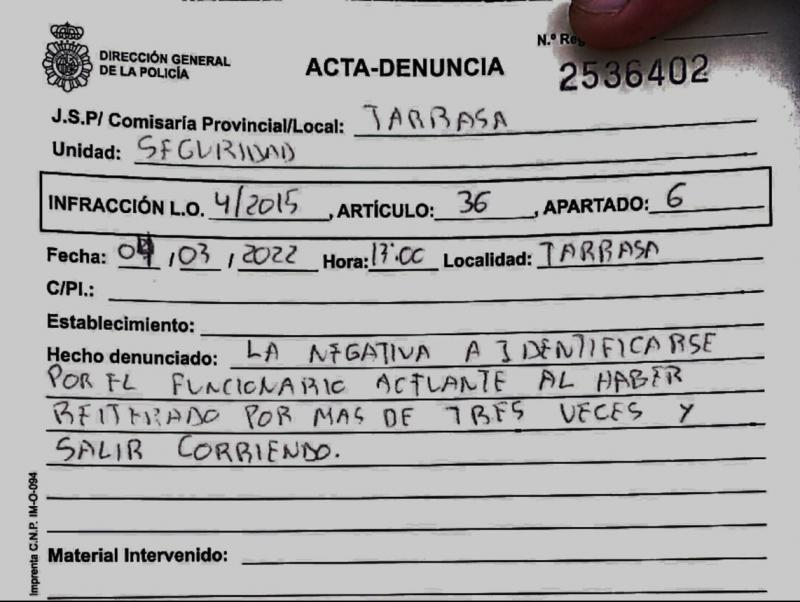 DIRECCIÓN GENERAL
DE LA POLICÍA
ACTA-DENUNCIA
N.º Reg
2536402
J.S.P/ Comisaría Provincial/Local: TARRASA
Unidad: SEGURIDAD
INFRACCIÓN L.O. 4/2015, ARTÍCULO: 36, APARTADO: 6
Fecha: 04/03/2022 Hora: 17:00 Localidad: TARRASA
C/Pl.:
Establecimiento:
Hecho denunciado: LA NEGATIVA A IDENTIFICARSE
POR EL FUNCIONARIO ACTUANTE AL HABER
REITERADO POR MAS DE TRES VECES Y
SALIR CORRIENDO.
Material Intervenido:
Imprenta C.N.P. IM-O-094